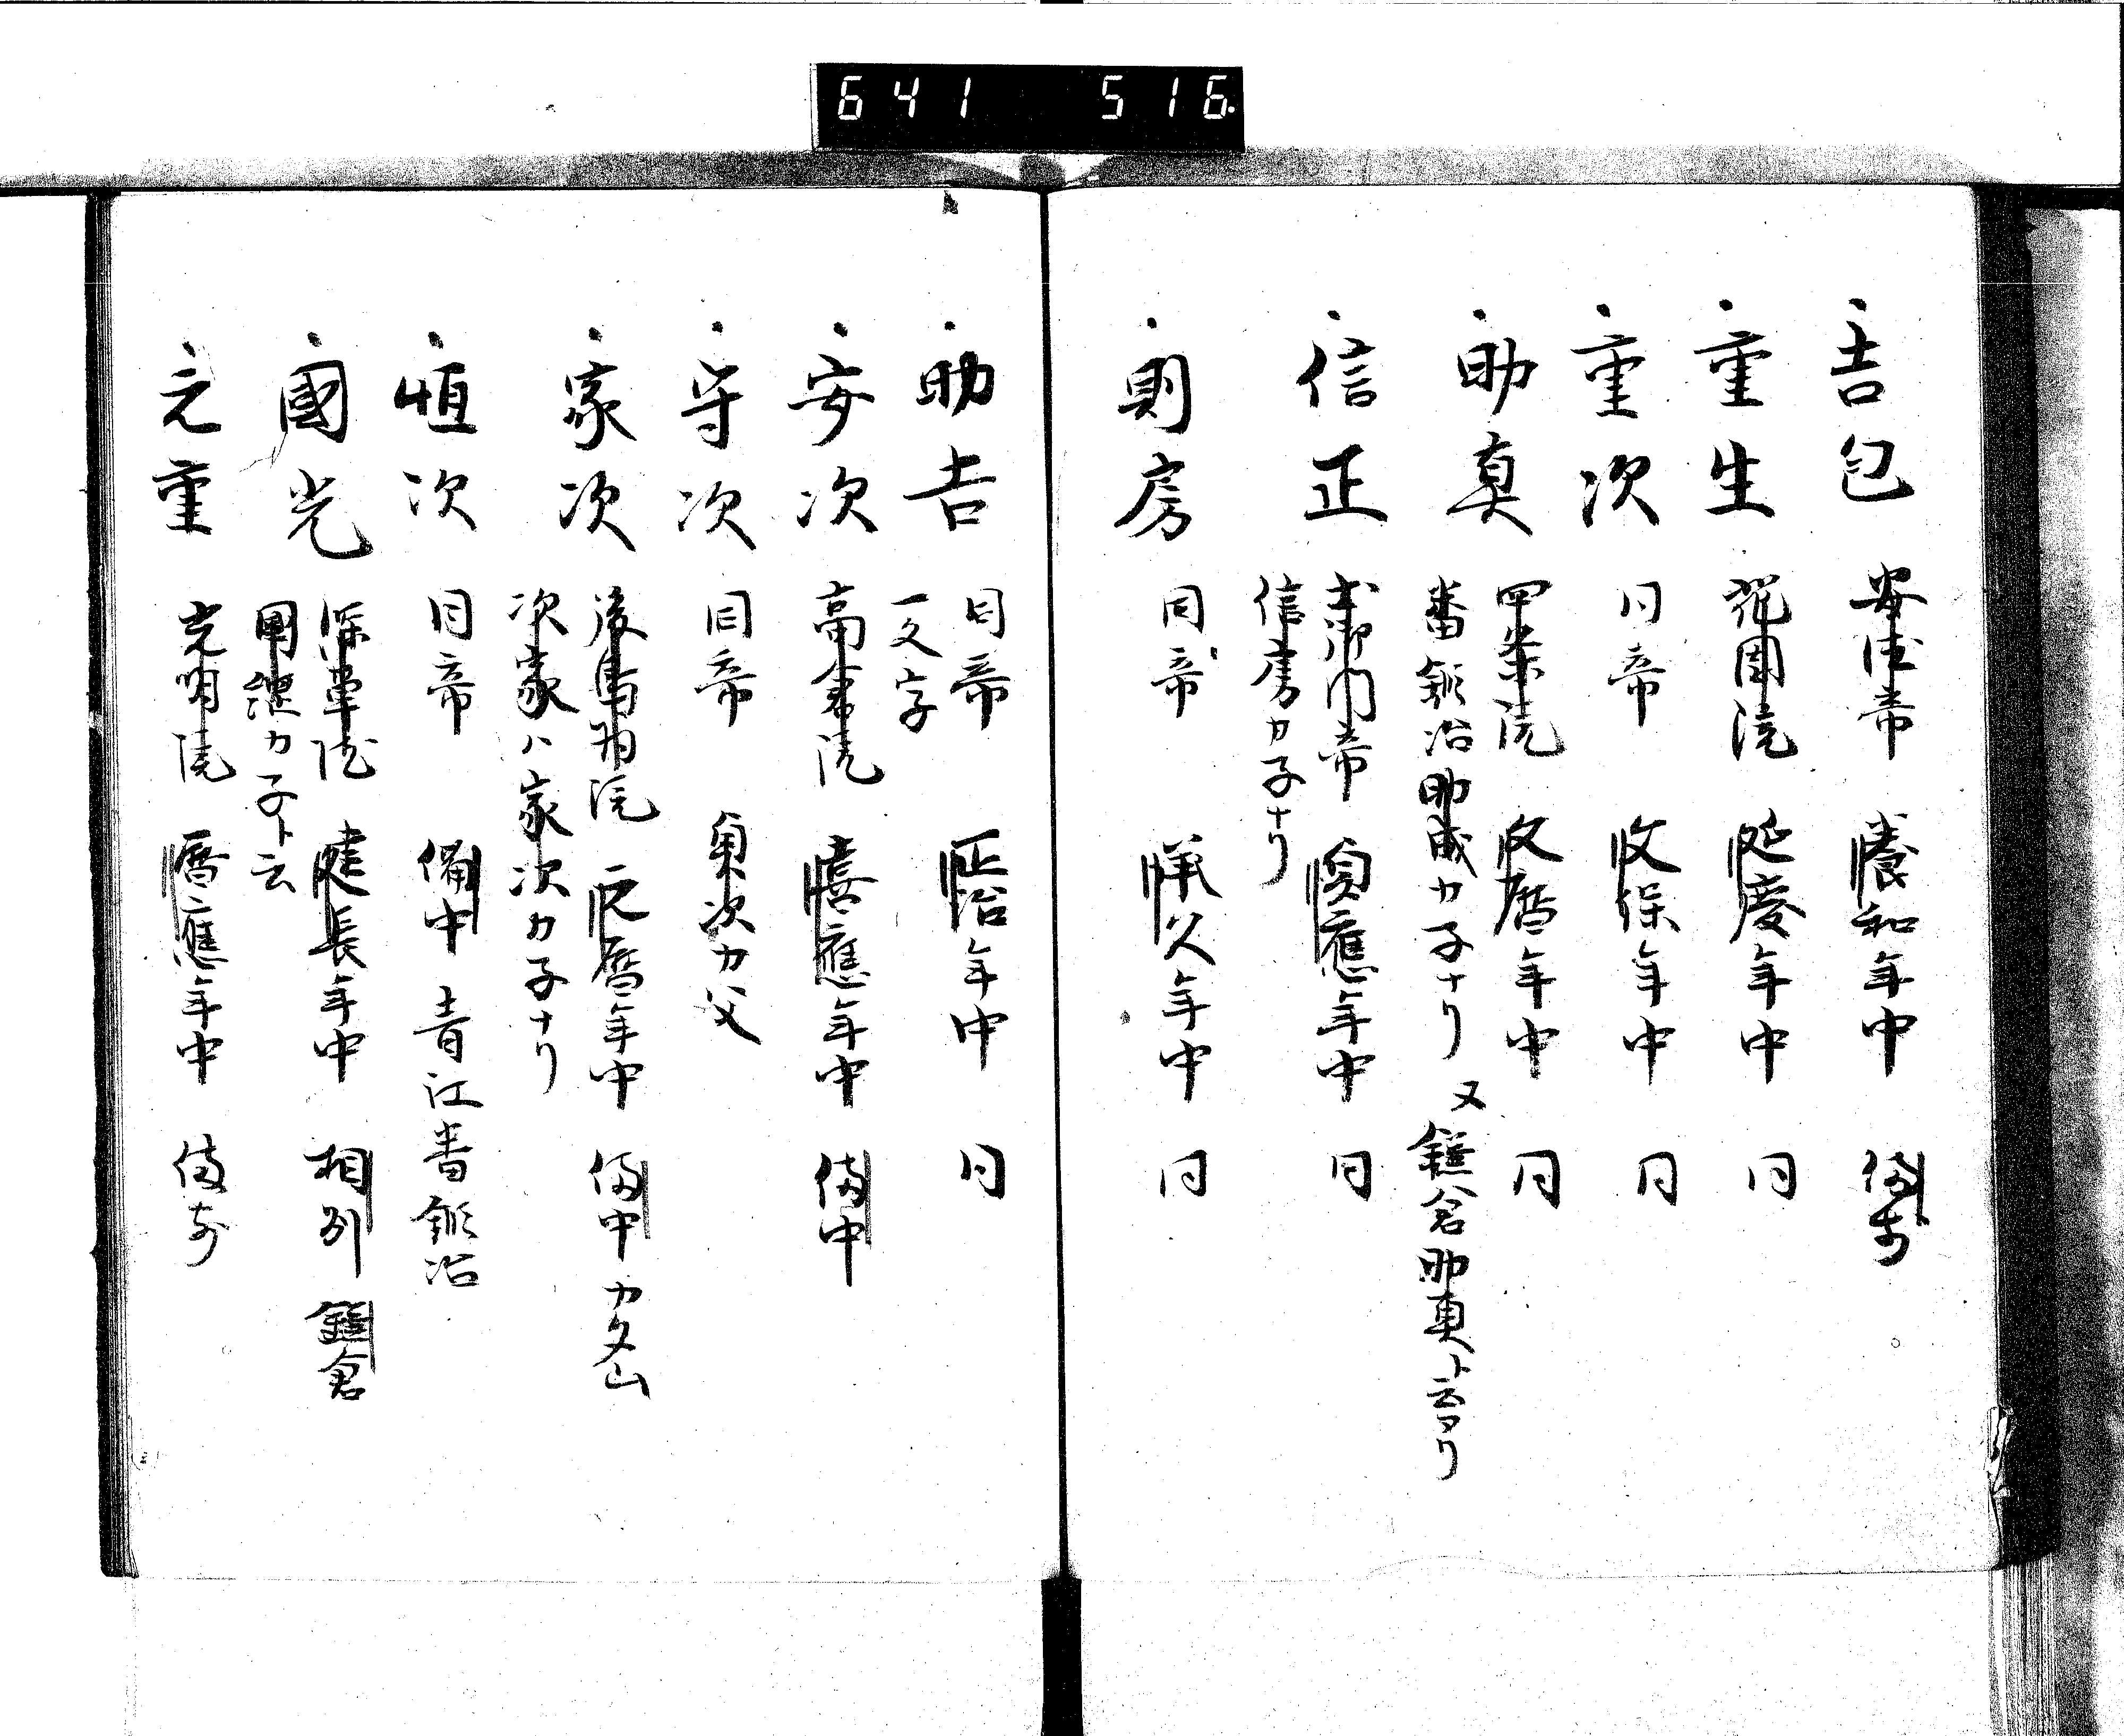 641 516.
吉包 安德帝 養和年中 備前
重生 花園院 延慶年中 同
重次 同帝 文保年中 同
助真 四条院 文暦年中 同
番鍛冶助成カ子ナリ 又鎌倉助真ト云フリ
信正 土御門帝 貞應年中 同
信房カ子ナリ
則房 同帝 承久年中 同
助吉 同帝 正治年中 同
一文字
安次 高倉院 嘉應年中 備中
守次 同帝 貞次カ父
家次 後鳥羽院 元暦年中 備中 カタ山
次家ハ家次カ子ナリ
恒次 同帝 備中 青江番鍛冶
國光 深草院 建長年中 相州 鎌倉
國継カ子ト云
元重 光明院 暦應年中 備前